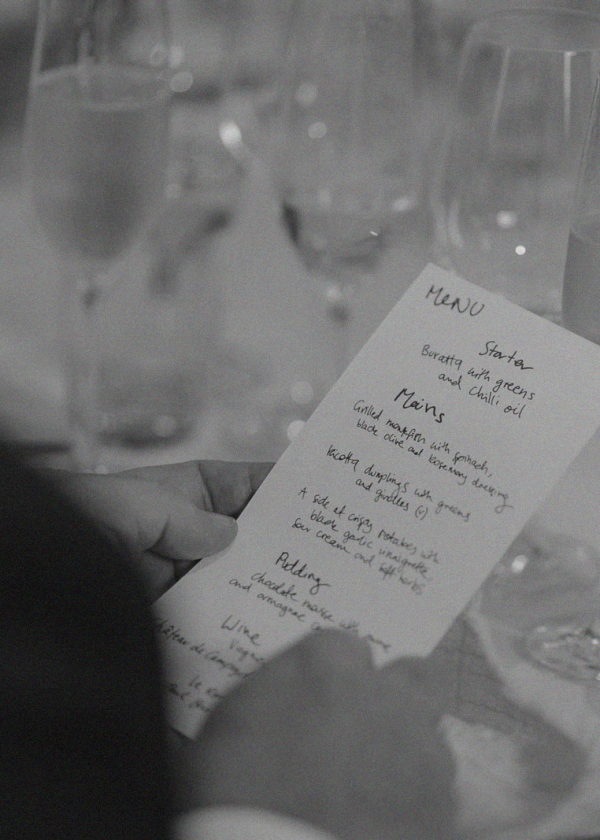 MENU
Starter
Buratta with greens
and chilli oil
Mains
Grilled monkfish with spinach,
black olive and rosemary dressing
Ricotta dumplings with greens
and girolles (v)
A side of crispy potatoes with
black garlic vinaigrette,
sour cream and soft herbs
Pudding
chocolate mousse with
and armagnac
Wine
Château de Campuget